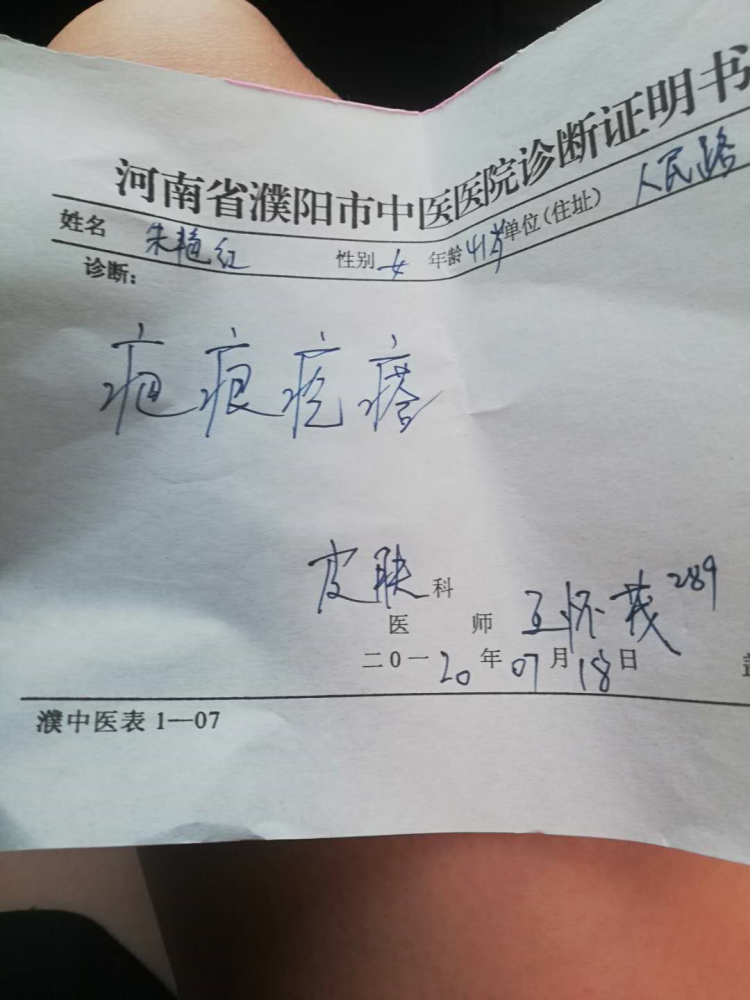 河南省濮阳市中医医院诊断证明书
姓名 朱艳红 性别 女 年龄 41岁 单位(住址) 人民路
诊断:
疤痕疙瘩
皮肤科
医 师 王怀茂 289
二0一20年07月18日
濮中医表 1—07